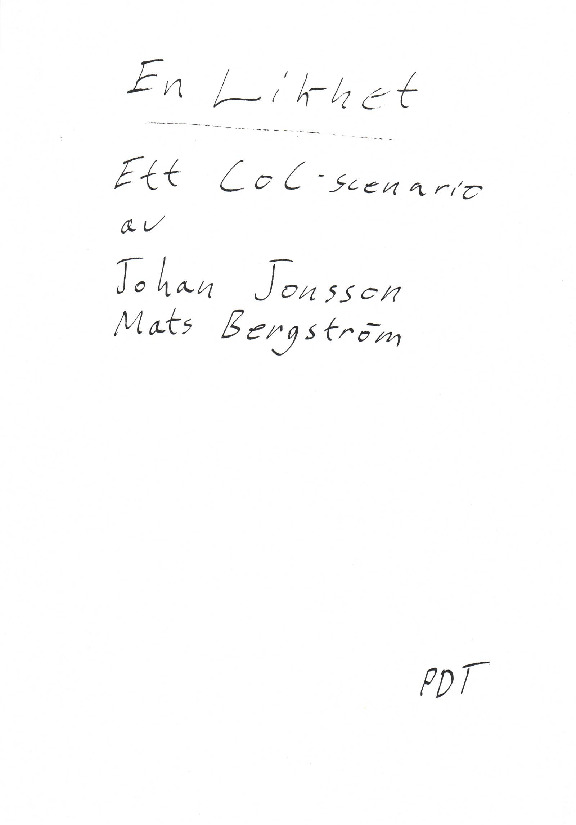 En Likhet
Ett CoC-scenario
av
Johan Jonsson
Mats Bergström
PDT